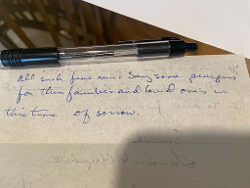 all such fine men! Say some prayers
for their families and loved ones in
this time of sorrow.